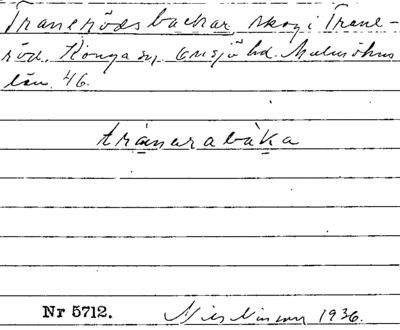 Tranerödsbackar, skog i Trane-
röd, Konga sn, Onsjö hd. Malmöhus
län. 46.
tránarabàka
Nr 5712. Nils 1936.